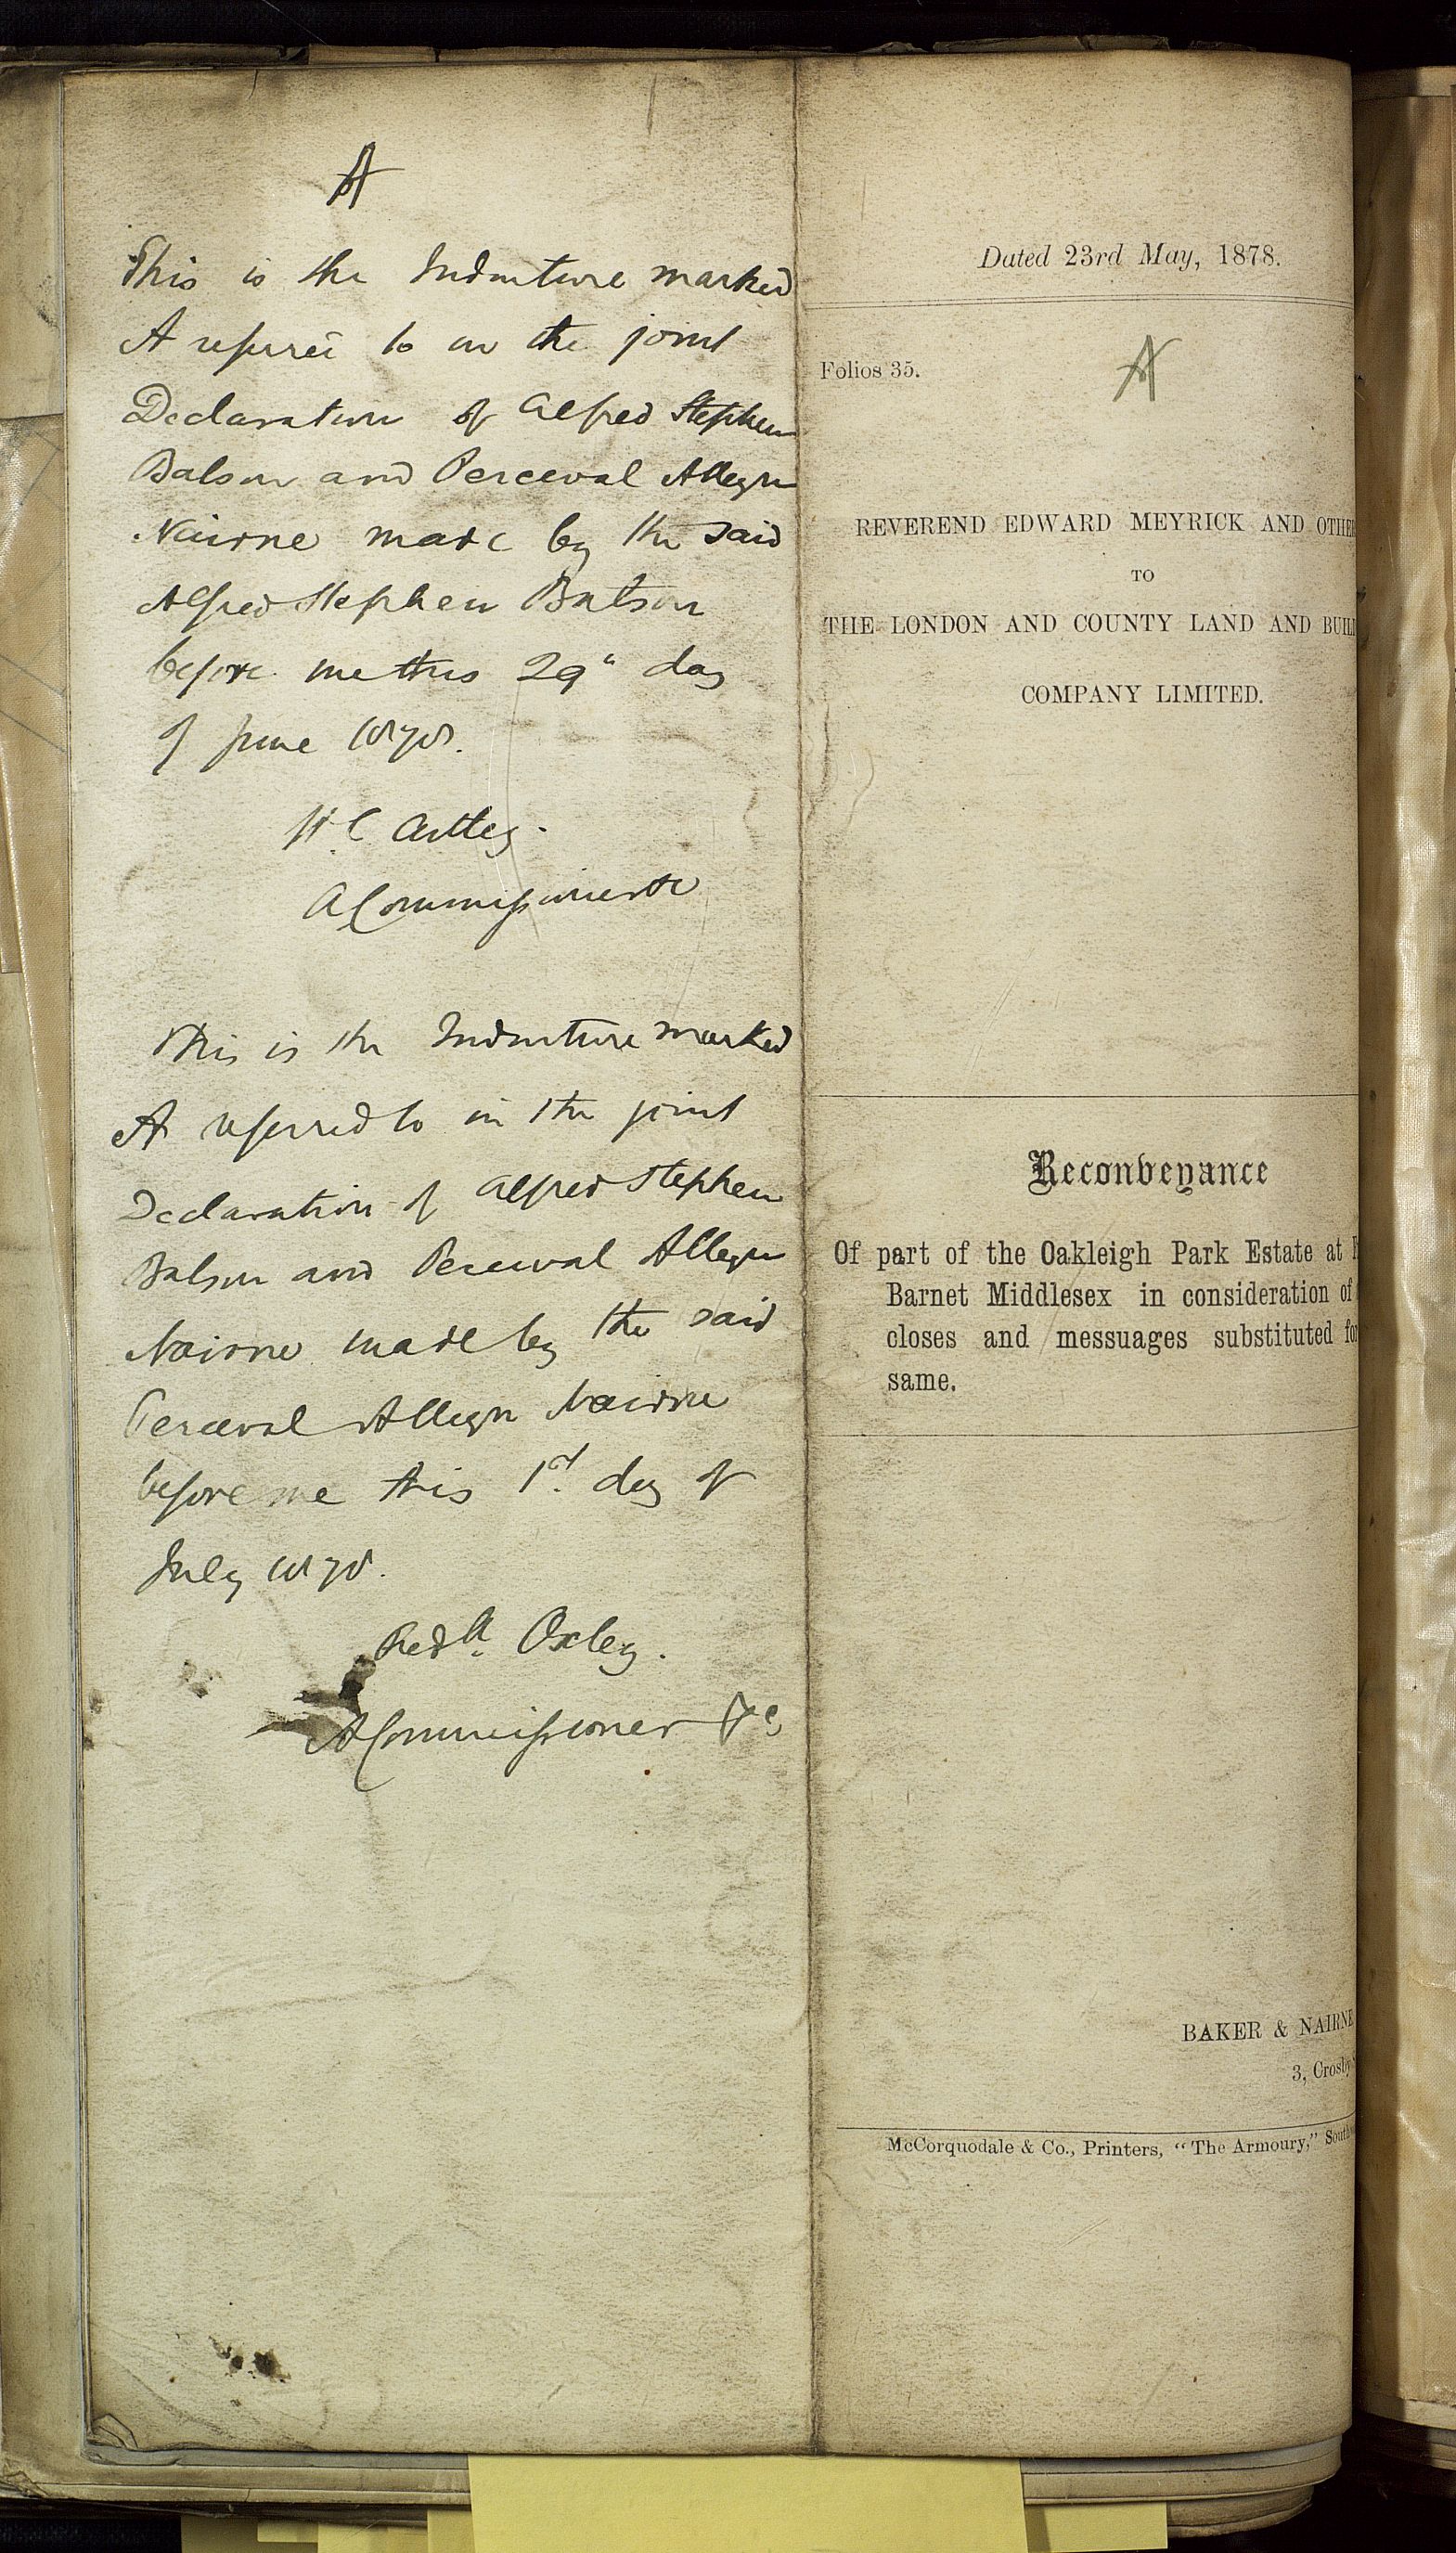 A
This is the Indenture marked
A referred to in the joint
Declaration of Alfred Stephen
Batson and Perceval Alleyn
Nairne made by the said
Alfred Stephen Batson
before me this 29" day
of June 1878.
A Commissioner &c
This is the Indenture marked
A referred to in the joint
Declaration of Alfred Stephen
Batson and Perceval Alleyn
Nairne made by the said
Perceval Alleyn Nairne
before me this 1st day of
July 1878.
Fredk. Oxley.
A Commissioner &c
Dated 23rd May, 1878.
Folios 35.
A
REVEREND EDWARD MEYRICK AND OTHE
TO
THE LONDON AND COUNTY LAND AND BUIL
COMPANY LIMITED.
Reconveyance
Of part of the Oakleigh Park Estate at
Barnet Middlesex in consideration of
closes and messuages substituted for
same.
BAKER & NAIRNE
3, Crosby
McCorquodale & Co., Printers, "The Armoury," South